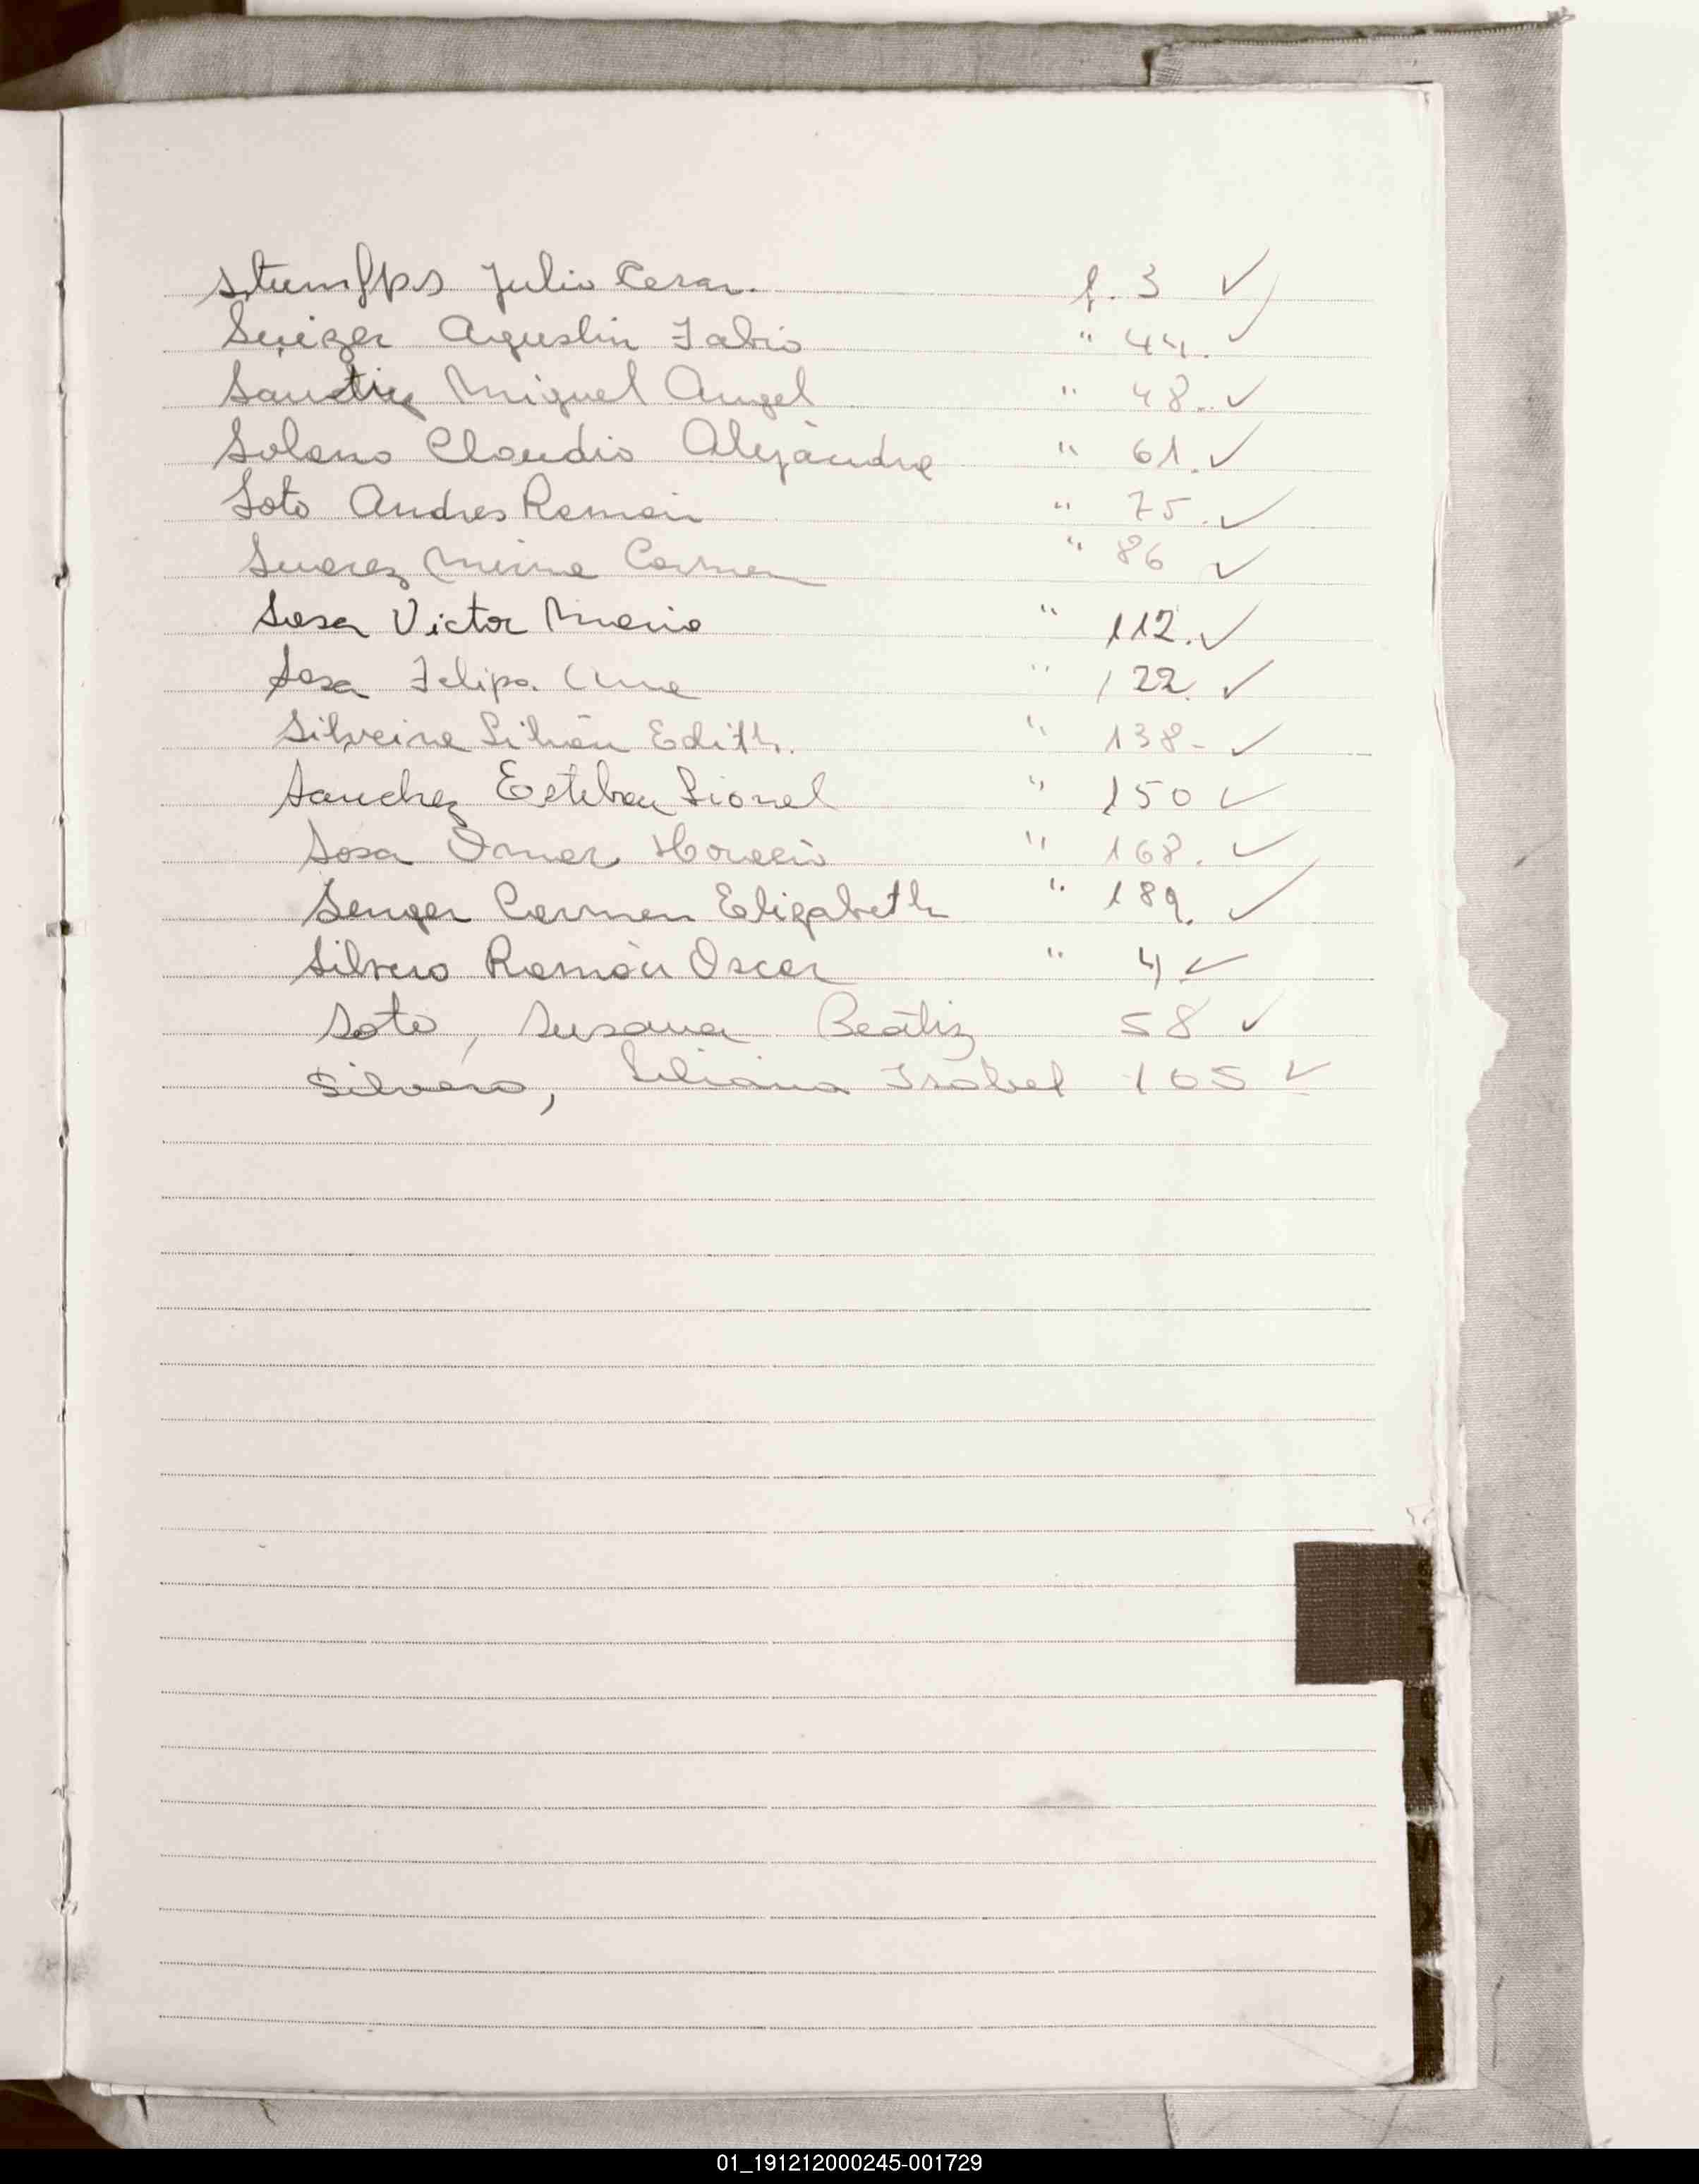 Stumfps Julio Cesar. f. 3 ✓
Suizer Agustin Fabio " 44. ✓
Miguel Angel " 48. ✓
Solano Claudio Alejandro " 61. ✓
Soto Andres Ramón " 75. ✓
Suarez Mirna Carmen " 86 ✓
Sosa Victor Mario " 112. ✓
Sosa Felipa Ana " 122. ✓
Silveira Lilián Edith. " 138- ✓
Sanchez Esteban Lionel " 150 ✓
Sosa Omar Horacio " 168. ✓
Senger Carmen Elizabeth " 189. ✓
Silvero Ramón Oscar " 4 ✓
Soto, Susana Beatiz 58 ✓
Silvero, Liliana Isabel 105 ✓
01_191212000245-001729